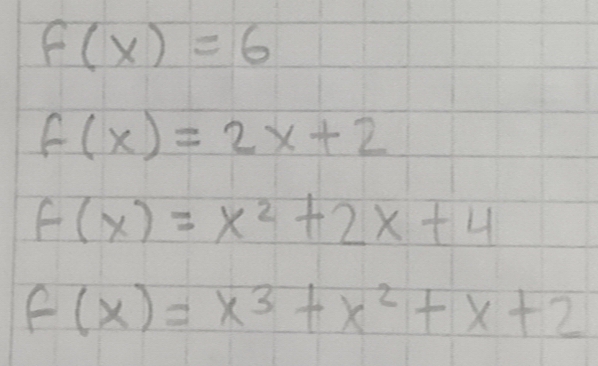 f(x) = 6
f(x) = 2x + 2
f(x) = x² + 2x + 4
f(x) = x³ + x² + x + 2